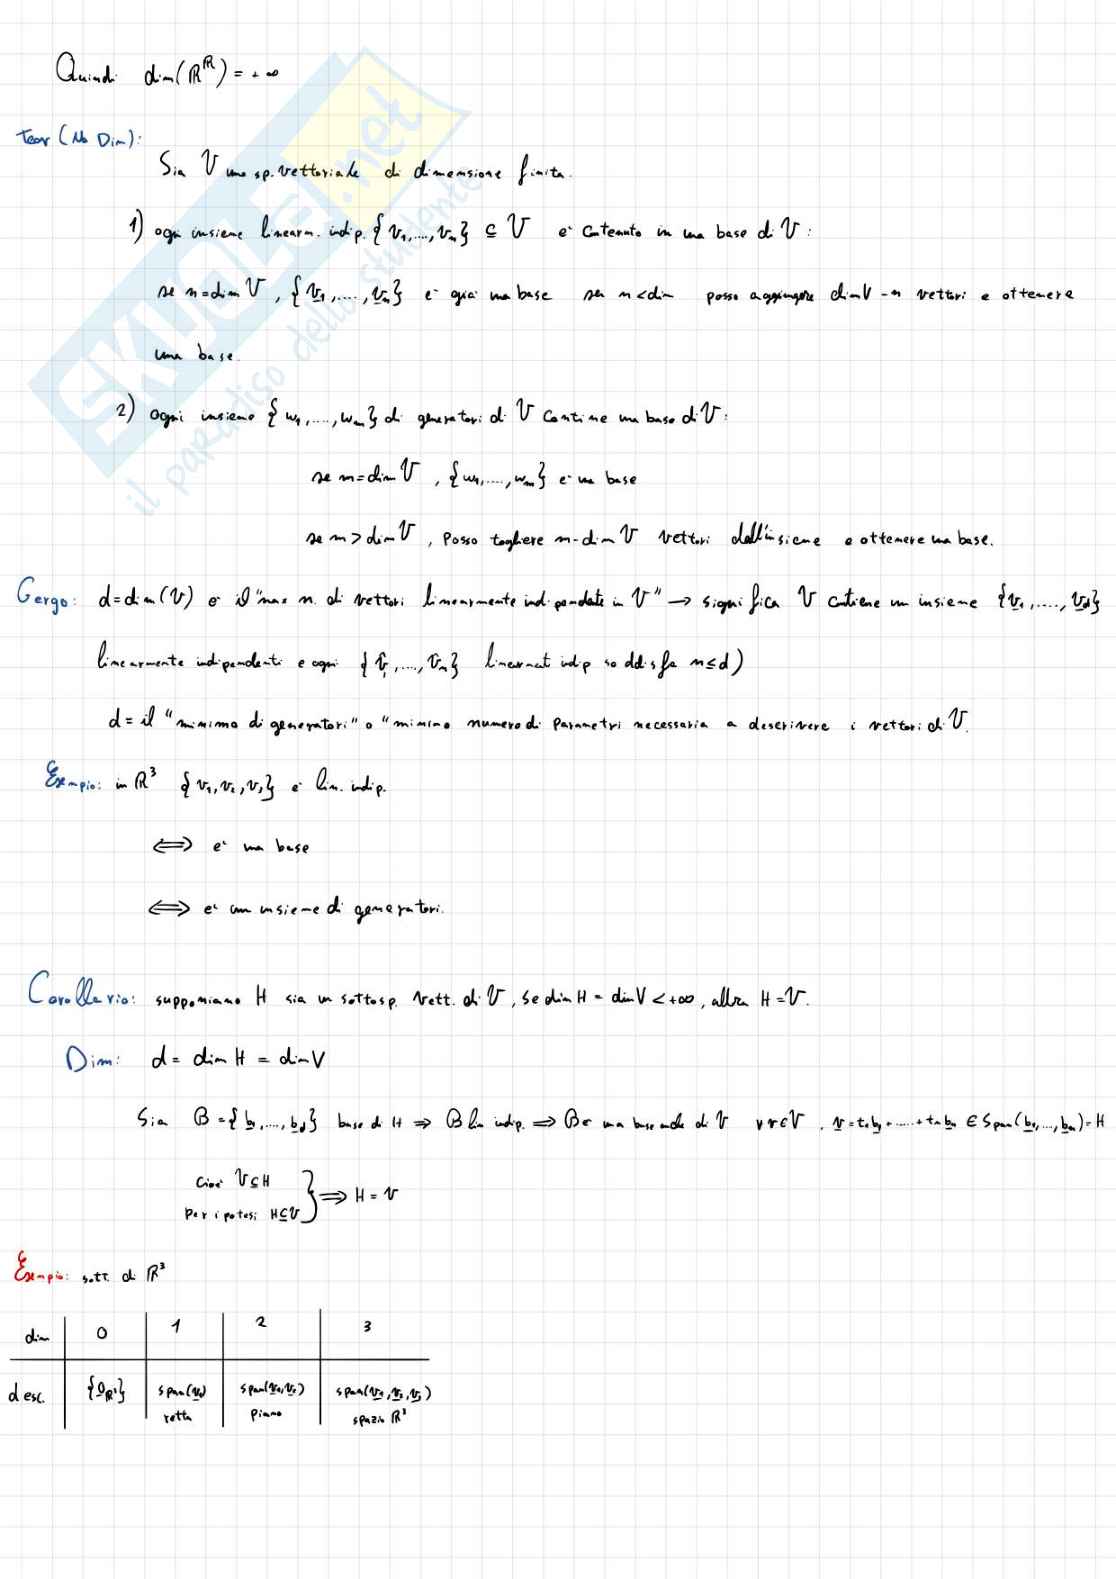 Quindi dim(ℝ^ℝ) = +∞
Teor (No Dim):
Sia V uno sp. vettoriale di dimensione finita.
1) ogni insieme linearm. indip. {v₁,...,vₙ} ⊆ V e' contenuto in una base di V:
se n=dim V, {v₁,....,vₙ} e' gia' una base se n<dim posso aggiungere dimV-n vettori e ottenere
una base.
2) ogni insieme {w₁,...,wₘ} di generatori di V contiene una base di V:
se m=dim V, {w₁,....,wₘ} e' una base
se m>dim V, posso togliere m-dim V vettori dall'insieme e ottenere una base.
Gergo: d=dim(V) e' il "max n. di vettori linearmente indipendente in V" → significa V contiene un insieme {v₁,....,v_d}
linearmente indipendenti e ogni {v₁,...,vₙ} linearment indip soddisfa n≤d)
d= il "minimo di generatori" o "minimo numero di parametri necessaria a descrivere i vettori di V.
Esempio: in ℝ³ {v₁,v₂,v₃} e' lin. indip.
⟺ e' una base
⟺ e' un insieme di generatori.
Corollario: supponiamo H sia un sottosp. vett. di V, se dim H = dim V < +∞, allora H=V.
Dim: d = dim H = dim V
Sia B={b₁,...,b_d} base di H ⇒ B lin indip. ⇒ B e' una base anche di V ∀v∈V, v=t₁b₁+.....+tₙbₙ ∈ Span(b₁,...,bₙ)=H
Cioe' V⊆H
Per ipotesi H⊆V } ⇒ H = V
Esempio: sott. di ℝ³
dim 0 1 2 3
desc. {0_ℝ³} span(v₁) span(v₁,v₂) span(v₁,v₂,v₃)
retta piano spazio ℝ³
SKUOLA.net
il paradiso dello studente